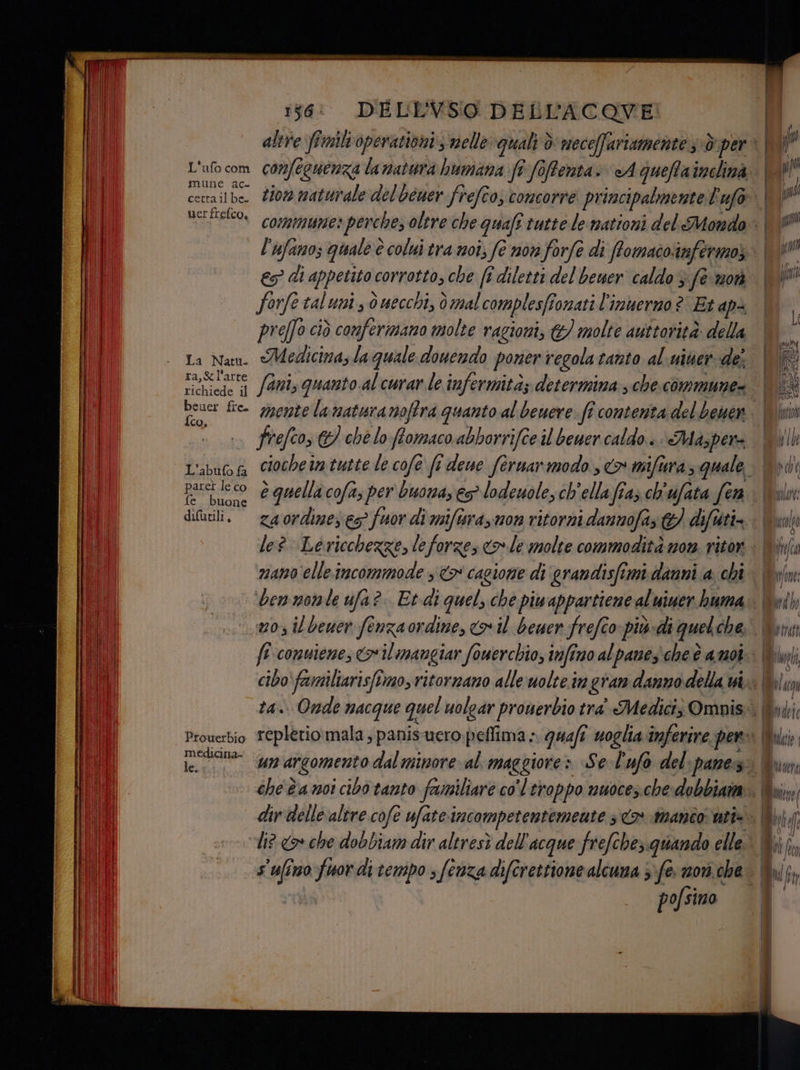 156 DELL'VSO DELL'ACQVE
altre ſimili operationi; nelle quali ò neceſſariamente, ò per
conſeguenza la natura humana ſi ſoſtenta. A queſta inclina
tion naturale del beuer freſco, concorre principalmente l'uſo
commune: perche, oltre che quaſi tutte le nationi del Mondo
l'uſano; quale è colui tra noi, ſe non forſe di ſtomaco infermo,
& di appetito corrotto, che ſi diletti del beuer caldo; ſe non
forſe tal uni, ò uecchi, ò mal complesſionati l'inuerno? Et ap-
preſſo ciò confermano molte ragioni, & molte auttorità della
Medicina, la quale douendo poner regola tanto al uiuer de'
ſani, quanto al curar le infermità; determina, che commune-
mente la natura noſtra quanto al beuere ſi contenta del beuer
freſco, & che lo ſtomaco abborriſce il beuer caldo. Ma, per-
cioche in tutte le coſe ſi deue ſeruar modo, & miſura, quale
è quella coſa, per buona, & lodeuole, ch'ella ſia, ch'uſata ſen
za ordine, & fuor di miſura, non ritorni dannoſa, & diſuti-
le? Le ricchezze, le forze, & le molte commodità non ritor
nano elle incommode, & cagione di grandisſimi danni a chi
ben non le uſa? Et di quel, che piu appartiene al uiuer huma
no, il beuer ſenza ordine, & il beuer freſco più di quel che
ſi conuiene, & il mangiar ſouerchio, infino al pane, che è a noi
cibo familiarisſimo, ritornano alle uolte in gran danno della ui
ta. Onde nacque quel uolgar prouerbio tra' Medici, Omnis
repletio mala, panis uero peſſima: quaſi uoglia inferire per
un argomento dal minore al maggiore: Se l'uſo del pane,
che è a noi cibo tanto familiare co'l troppo nuoce, che dobbiam
dir delle altre coſe uſate incompetentemente, & manco uti-
li? & che dobbiam dir altresì dell'acque freſche, quando elle
s'uſino fuor di tempo, ſenza diſcrettione alcuna; ſe non che
poſsino
L'uſo com
mune ac-
cetta il be-
uer freſco,
La Natu-
ra, & l'arte
richiede il
beuer fre-
ſco,
L'abuſo fa
parer le co
ſe buone
diſutili,
Prouerbio
medicina-
le.